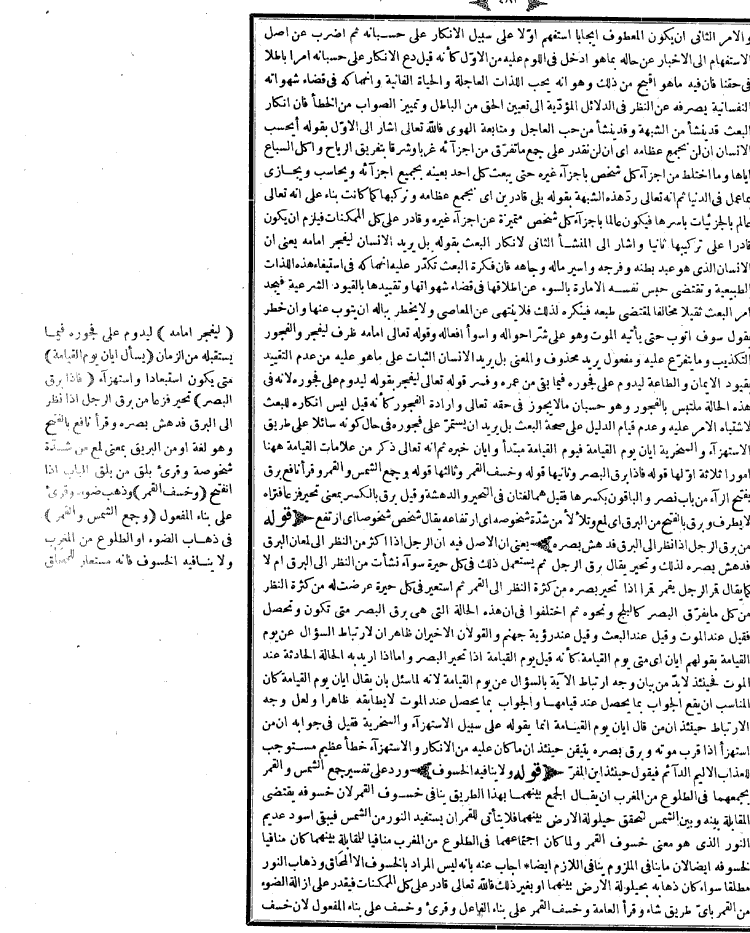 ٤٨٢
والامر الثانى ان يكون المعطوف ايجابا استفهم اولا على سبيل الانكار على حسبانه ثم اضرب عن اصل
الاستفهام الى الاخبار عن حاله بما هو ادخل فى اللوم عليه من الاول كأنه قيل دع الانكار على حسبانه امرا باطلا
فى حقنا فان فيه ماهو اقبح من ذلك وهو انه يحب اللذات العاجلة والحياة الفانية وانهماكه فى قضاء شهواته
النفسانية يصرفه عن النظر فى الدلائل المؤدية الى تعيين الحق من الباطل وتمييز الصواب من الخطأ فان انكار
البعث قد ينشأ من الشبهة وقد ينشأ من حب العاجل ومتابعة الهوى فالله تعالى اشار الى الاول بقوله أيحسب
الانسان ان لن نجمع عظامه اى ان لن نقدر على جمع ماتفرق من اجزآئه غربا وشرقا بتفريق الرياح واكل السباع
اياها وما اختلط من اجزآء كل شخص باجزآء غيره حتى يبعث كل احد بعينه بجميع اجزآئه ويحاسب ويجازى
بما عمل فى الدنيا ثم انه تعالى رد هذه الشبهة بقوله بلى قادرين اى نجمع عظامه ونركبها كما كانت بناء على انه تعالى
عالم بالجزئيات باسرها فيكون عالما باجزآء كل شخص متميزة عن اجزآء غيره وقادر على كل الممكنات فيلزم ان يكون
قادرا على تركيبها ثانيا واشار الى المنشأ الثانى لانكار البعث بقوله بل يريد الانسان ليفجر امامه يعنى ان
الانسان الذى هو عبد بطنه وفرجه واسير ماله وجاهه فان فكرة البعث تكدر عليه انهماكه فى استيفاء هذه اللذات
الطبيعية وتقتضى حبس نفسه الامارة بالسوء عن اطلاقها فى قضاء شهواتها وتقييدها بالقيود الشرعية فيجد
امر البعث ثقيلا مخالفا لمقتضى طبعه فينكره لذلك فلا ينتهى عن المعاصى ولا يخطر بباله ان يتوب عنها وان خطر
يقول سوف اتوب حتى يأتيه الموت وهو على شر احواله واسوأ افعاله وقوله تعالى امامه ظرف ليفجر والفجور
التكذيب وما يتفرع عليه ومفعول يريد محذوف والمعنى بل يريد الانسان الثبات على ماهو عليه من عدم التقييد
بقيود الايمان والطاعة ليدوم على فجوره فيما بقى من عمره وفسر قوله تعالى ليفجر بقوله ليدوم على فجوره لانه فى
هذه الحالة ملتبس بالفجور وهو حسبان مالا يجوز فى حقه تعالى وارادة الفجور كأنه قيل ليس انكاره للبعث
لاشتباه الامر عليه وعدم قيام الدليل على صحة البعث بل يريد ان يستمر على فجوره فى حال كونه سائلا على طريق
الاستهزآء والسخرية ايان يوم القيامة فيوم القيامة مبتدأ وايان خبره ثم انه تعالى ذكر من علامات القيامة ههنا
امورا ثلاثة اولها قوله فاذا برق البصر وثانيها قوله وخسف القمر وثالثها قوله وجمع الشمس والقمر وقرأ نافع برق
بفتح الرآء من باب نصر والباقون بكسرها فقيل هما لغتان فى التحير والدهشة وقيل برق بالكسر بمعنى تحير فزعا فتراه
لا يطرف وبرق بالفتح من البرق اى لمع وتلألأ من شدة شخوصه اى ارتفاعه يقال شخص شخوصا اى ارتفع ﴿قوله
من برق الرجل اذا نظر الى البرق فدهش بصره﴾ يعنى ان الاصل فيه ان الرجل اذا اكثر من النظر الى لمعان البرق
فدهش بصره لذلك وتحير يقال برق الرجل ثم يستعمل ذلك فى كل حيرة سوآء نشأت من النظر الى البرق ام لا
كما يقال قمر الرجل يقمر قمرا اذا تحير بصره من كثرة النظر الى القمر ثم استعير فى كل حيرة عرضت له من كثرة النظر
من كل مايفرق البصر كالبلج ونحوه ثم اختلفوا فى ان هذه الحالة التى هى برق البصر متى تكون وتحصل
فقيل عند الموت وقيل عند البعث وقيل عند رؤية جهنم والقولان الاخيران ظاهران لارتباط السؤال عن يوم
القيامة بقولهم ايان اى متى يوم القيامة كأنه قيل يوم القيامة اذا تحير البصر واما اذا اريد به الحالة الحادثة عند
الموت فحينئذ لابد من بيان وجه ارتباط الآية بالسؤال عن يوم القيامة لانه لما سئل بان يقال ايان يوم القيامة كان
المناسب ان يقع الجواب بما يحصل عند قيامها والجواب بما يحصل عند الموت لا يطابقه ظاهرا ولعل وجه
الارتباط حينئذ ان من قال ايان يوم القيامة انما يقوله على سبيل الاستهزآء والسخرية فقيل فى جوابه ان من
استهزأ اذا قرب موته وبرق بصره يتيقن حينئذ ان ماكان عليه من الانكار والاستهزآء خطأ عظيم مستوجب
للعذاب الاليم الدآئم فيقول حينئذ اين المفر ﴿قوله ولا ينافيه الخسوف﴾ ورد على تفسير جمع الشمس والقمر
بجمعهما فى الطلوع من المغرب ان يقال الجمع بينهما بهذا الطريق ينافى خسوف القمر لان خسوفه يقتضى
المقابلة بينه وبين الشمس لتحقق حيلولة الارض بينهما فلا يتأتى للقمر ان يستفيد النور من الشمس فيبقى اسود عديم
النور الذى هو معنى خسوف القمر ولما كان اجتماعهما فى الطلوع من المغرب منافيا للمقابلة بينهما كان منافيا
لخسوفه ايضا لان ماينافى الملزوم ينافى اللازم ايضا * اجاب عنه بانه ليس المراد بالخسوف الا المحاق وذهاب النور
مطلقا سواء كان ذهابه بحيلولة الارض بينهما او بغير ذلك فالله تعالى قادر على كل الممكنات فيقدر على ازالة الضوء
من القمر باى طريق شاء وقرأ العامة وخسف القمر على بناء الفاعل وقرئ وخسف على بناء المفعول لان خسف
( ليفجر امامه ) ليدوم على فجوره فيما
يستقبله من الزمان (يسأل ايان يوم القيامة)
متى يكون استبعادا واستهزآء ( فاذا برق
البصر ) تحير فزعا من برق الرجل اذا نظر
الى البرق فدهش بصره وقرأ نافع بالفتح
وهو لغة او من البريق بمعنى لمع من شدة
شخوصة وقرئ بلق من بلق الباب اذا
انفتح (وخسف القمر) وذهب ضوءه وقرئ
على بناء المفعول ( وجمع الشمس والقمر )
فى ذهاب الضوء او الطلوع من المغرب
ولا ينافيه الخسوف فانه مستعار للمحاق